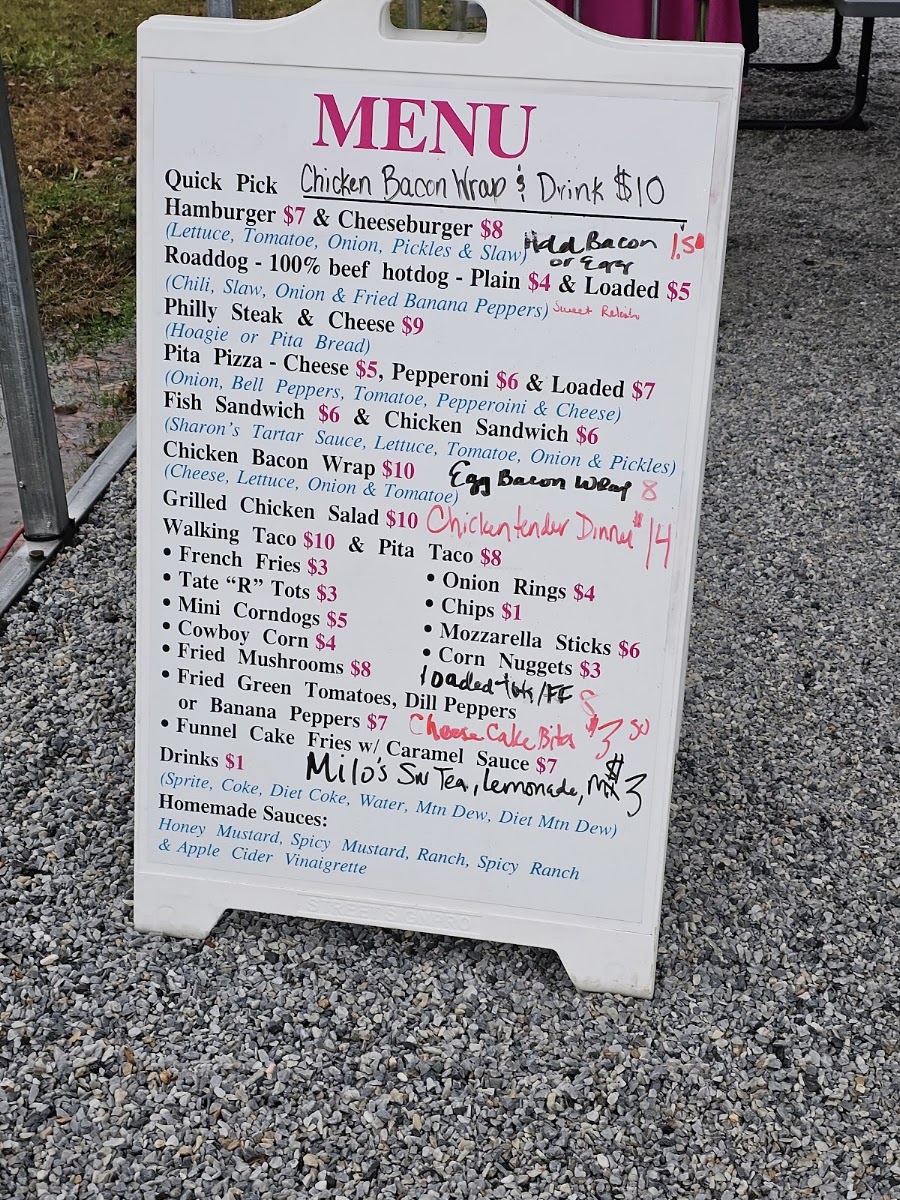 MENU
Quick Pick Chicken Bacon Wrap & Drink $10
Hamburger $7 & Cheeseburger $8
(Lettuce, Tomatoe, Onion, Pickles & Slaw) Add Bacon 1.50
or Egg
Roaddog - 100% beef hotdog - Plain $4 & Loaded $5
(Chili, Slaw, Onion & Fried Banana Peppers) Sweet Relish
Philly Steak & Cheese $9
(Hoagie or Pita Bread)
Pita Pizza - Cheese $5, Pepperoni $6 & Loaded $7
(Onion, Bell Peppers, Tomatoe, Pepperoini & Cheese)
Fish Sandwich $6 & Chicken Sandwich $6
(Sharon's Tartar Sauce, Lettuce, Tomatoe, Onion & Pickles)
Chicken Bacon Wrap $10 Egg Bacon Wrap 8
(Cheese, Lettuce, Onion & Tomatoe)
Grilled Chicken Salad $10 Chicken tender Dinner $14
Walking Taco $10 & Pita Taco $8
• French Fries $3 • Onion Rings $4
• Tate “R” Tots $3 • Chips $1
• Mini Corndogs $5 • Mozzarella Sticks $6
• Cowboy Corn $4 • Corn Nuggets $3
• Fried Mushrooms $8 loaded tots/FF 8
• Fried Green Tomatoes, Dill Peppers
or Banana Peppers $7 Cheese Cake Bites $3 50
• Funnel Cake Fries w/ Caramel Sauce $7
Drinks $1 Milo's Sw Tea, Lemonade, $3
(Sprite, Coke, Diet Coke, Water, Mtn Dew, Diet Mtn Dew)
Homemade Sauces:
Honey Mustard, Spicy Mustard, Ranch, Spicy Ranch
& Apple Cider Vinaigrette